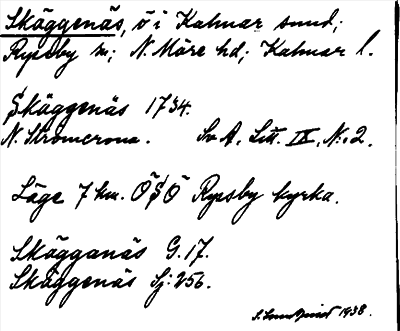 Skäggenäs, ö i Kalmar sund;
Ryssby sn; N. Möre hd; Kalmar l.
Skäggenäs 1734.
N. Strömerona. Sv A. Litt. IX, N:o 2.
Läge 7 km. ÖSÖ Ryssby kyrka.
Skägganäs G. 17.
Skäggenäs Sj: 256.
S. Lundquist 1938.